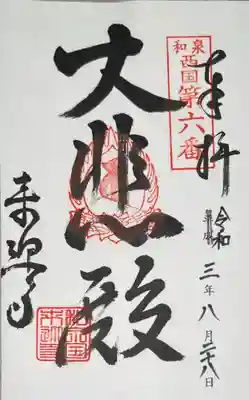 奉拝
和泉
西国第六番
令和三年八月二十八日
大悲殿
来迎寺